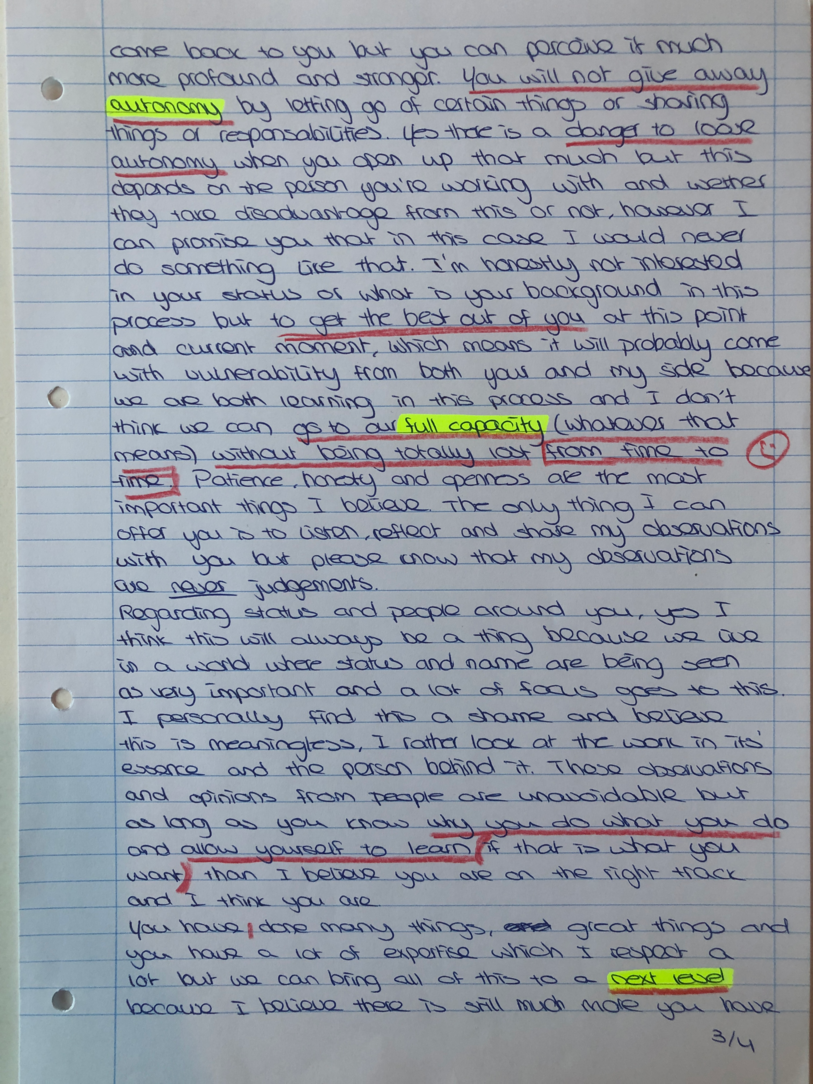 come back to you but you can perceive it much
more profound and stronger. You will not give away
autonomy by letting go of certain things or sharing
things or responsabilities. Yes there is a danger to loose
autonomy when you open up that much but this
depends on the person you're working with and wether
they take disadvantage from this or not, however I
can promise you that in this case I would never
do something like that. I'm honestly not interested
in your status or what is your background in this
process but to get the best out of you at this point
and current moment, which means it will probably come
with vulnerability from both your and my side because
we are both learning in this process and I don't
think we can go to our full capacity (whatever that
means) without being totally lost from time to
time. Patience, honesty and openness are the most
important things I believe. The only thing I can
offer you is to listen, reflect and share my observations
with you but please know that my observations
are never judgements.
Regarding status and people around you, yes I
think this will always be a thing because we live
in a world where status and name are being seen
as very important and a lot of focus goes to this.
I personally find this a shame and believe
this is meaningless, I rather look at the work in its'
essence and the person behind it. Those observations
and opinions from people are unavoidable but
as long as you know why you do what you do
and allow yourself to learn (if that is what you
want) than I believe you are on the right track
and I think you are
You have done many things, great things and
you have a lot of expertise which I respect a
lot but we can bring all of this to a next level
because I believe there is still much more you have
3/4